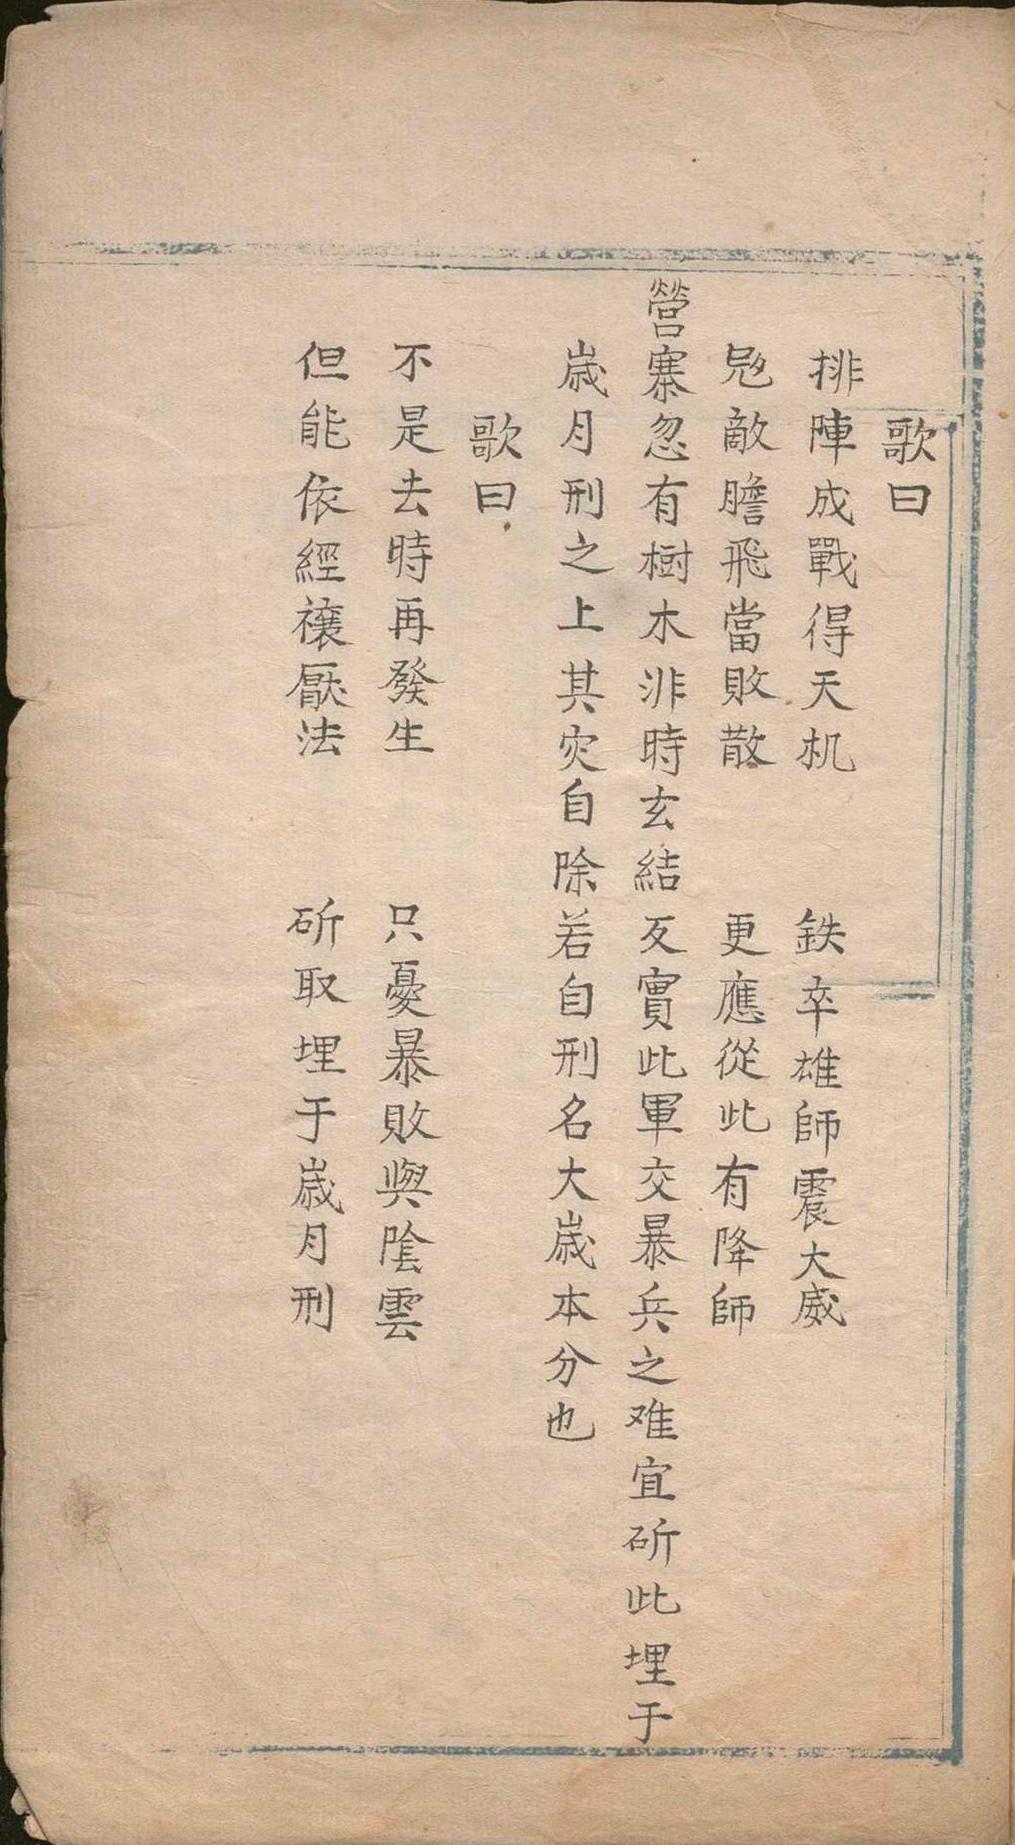 歌曰
排陣成戰得天机　鉄卒雄師震大威
敵膽飛當敗散　更應從此有降師
營寨忽有樹木非時玄結反實此軍交暴兵之难宜斫此埋于
歳月刑之上其灾自除若自刑名大歳本分也
歌曰
不是去時再發生　只憂暴敗與陰雲
但能依經禳厭法　斫取埋于歳月刑